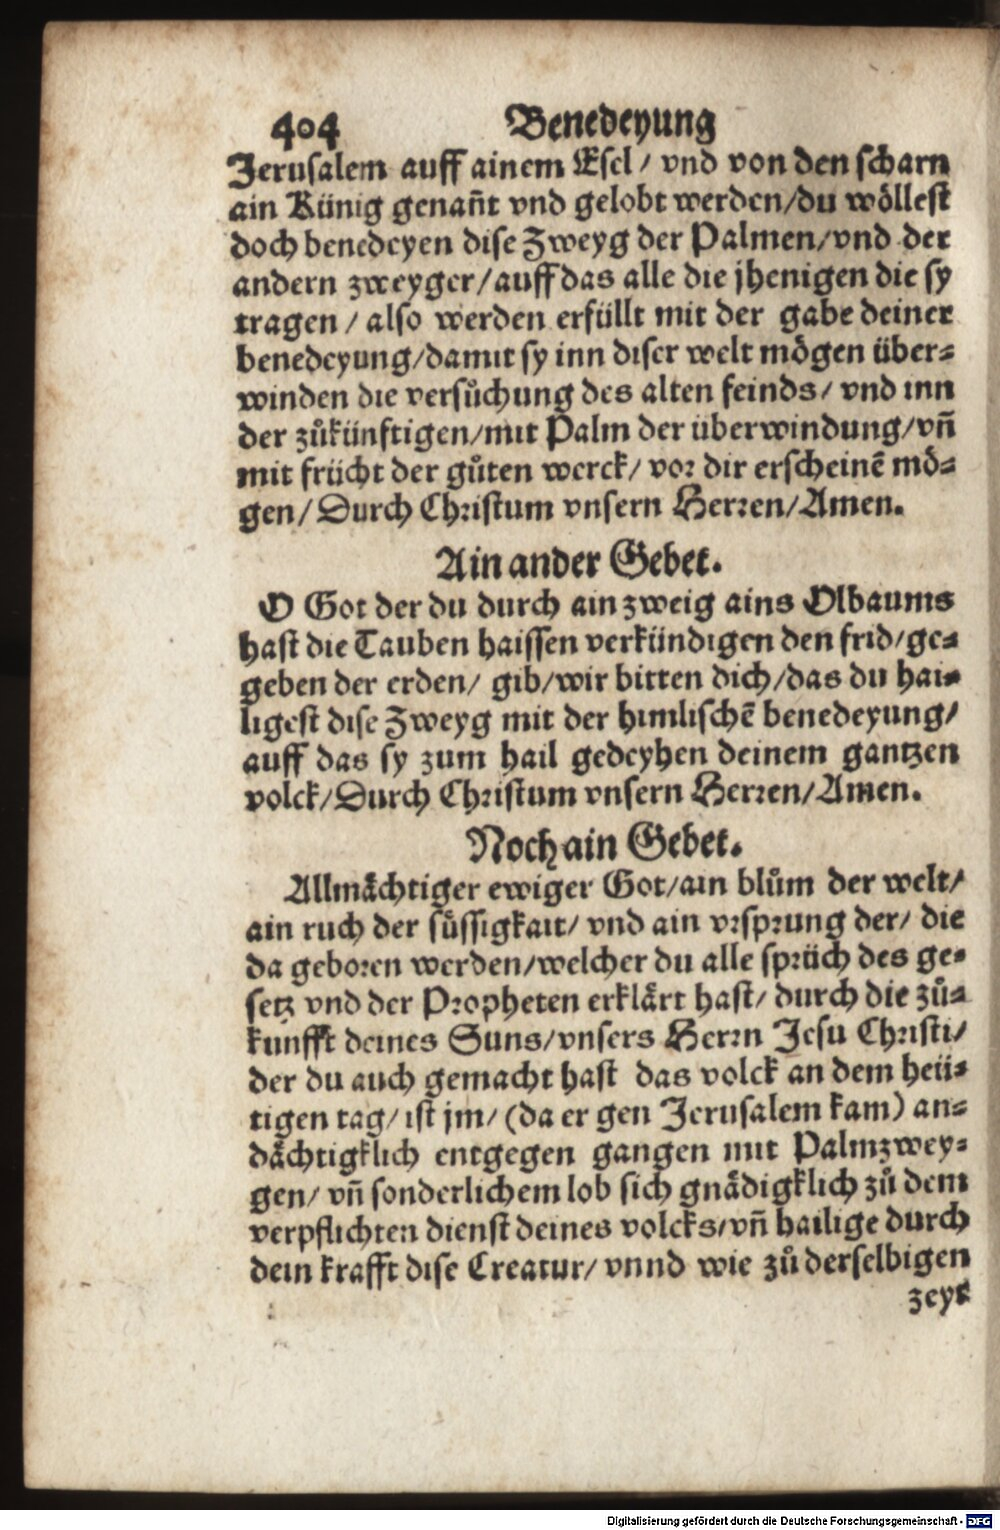 404 Benedeyung
Jerusalem auff ainem Esel / vnd von den scharn
ain Künig genañt vnd gelobt werden/du wöllest
doch benedeyen dise Zweyg der Palmen/vnd der
andern zweyger/auff das alle die jhenigen die sy
tragen / also werden erfüllt mit der gabe deiner
benedeyung/damit sy inn diser welt mögen über-
winden die versůchung des alten feinds/ vnd inn
der zůkünftigen/mit Palm der überwindung/vñ
mit frücht der gůten werck/ vor dir erscheinẽ mö-
gen/ Durch Christum vnsern Herren/Amen.
Ain ander Gebet.
O Got der du durch ain zweig ains Olbaums
hast die Tauben haissen verkündigen den frid/ge-
geben der erden/ gib/wir bitten dich/das du hai-
ligest dise Zweyg mit der himlischẽ benedeyung/
auff das sy zum hail gedeyhen deinem gantzen
volck/Durch Christum vnsern Herren/Amen.
Noch ain Gebet.
Allmächtiger ewiger Got/ain blům der welt/
ain ruch der sůssigkait/ vnd ain vrsprung der/ die
da geboren werden/welcher du alle sprüch des ge-
setz vnd der Propheten erklärt hast/ durch die zů-
kunfft deines Suns/vnsers Herrn Jesu Christi/
der du auch gemacht hast das volck an dem heü-
tigen tag/ ist jm/ (da er gen Jerusalem kam) an-
dächtigklich entgegen gangen mit Palmzwey-
gen/ vñ sonderlichem lob sich gnädigklich zů dem
verpflichten dienst deines volcks/vñ hailige durch
dein krafft dise Creatur/ vnnd wie zů derselbigen
zeyt
Digitalisierung gefördert durch die Deutsche Forschungsgemeinschaft - DFG